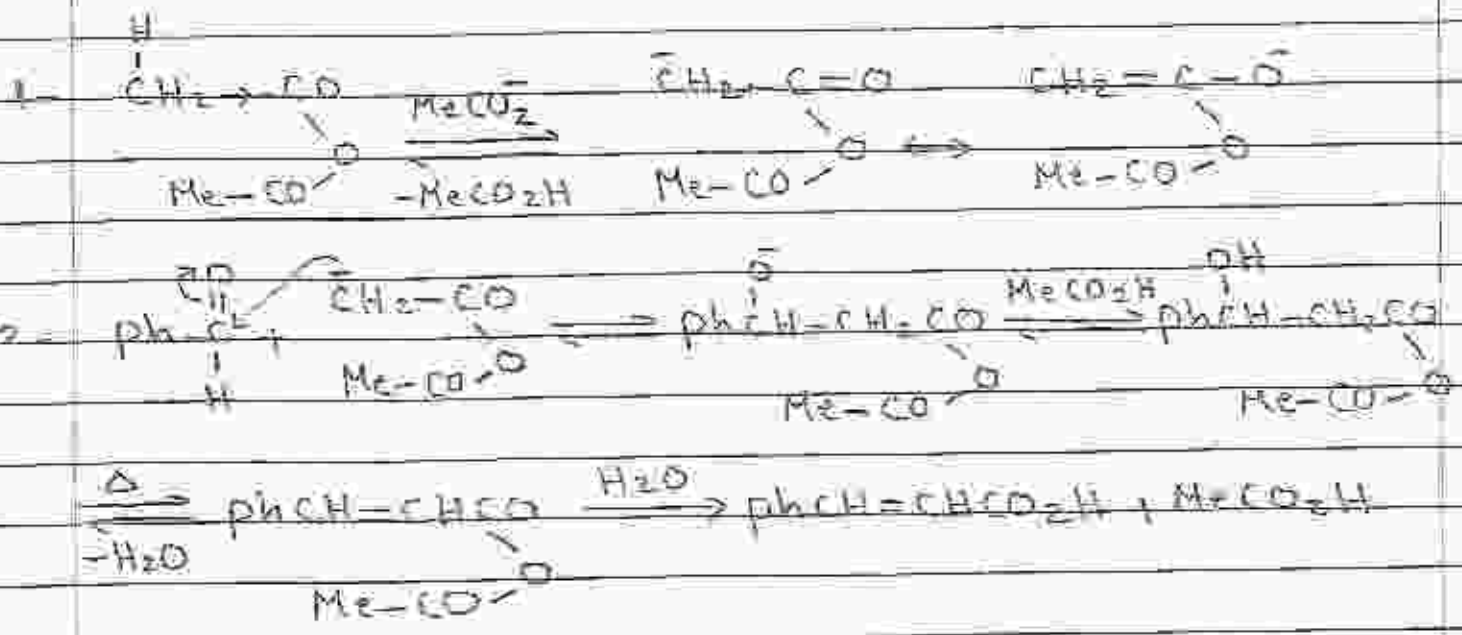 H
1- CH2→-CO MeCO2⁻ C̄H2-C=O CH2=C-O⁻
O O ↔ O
Me-CO -MeCO2H Me-CO Me-CO
O O⁻ OH
2- ph-C + C̄H2-CO ⇌ phCH-CH2CO MeCO2H phCH-CH2CO
H Me-CO-O Me-CO O Me-CO-O
Δ phCH-CHCO H2O → phCH=CHCO2H + MeCO2H
-H2O O
Me-CO